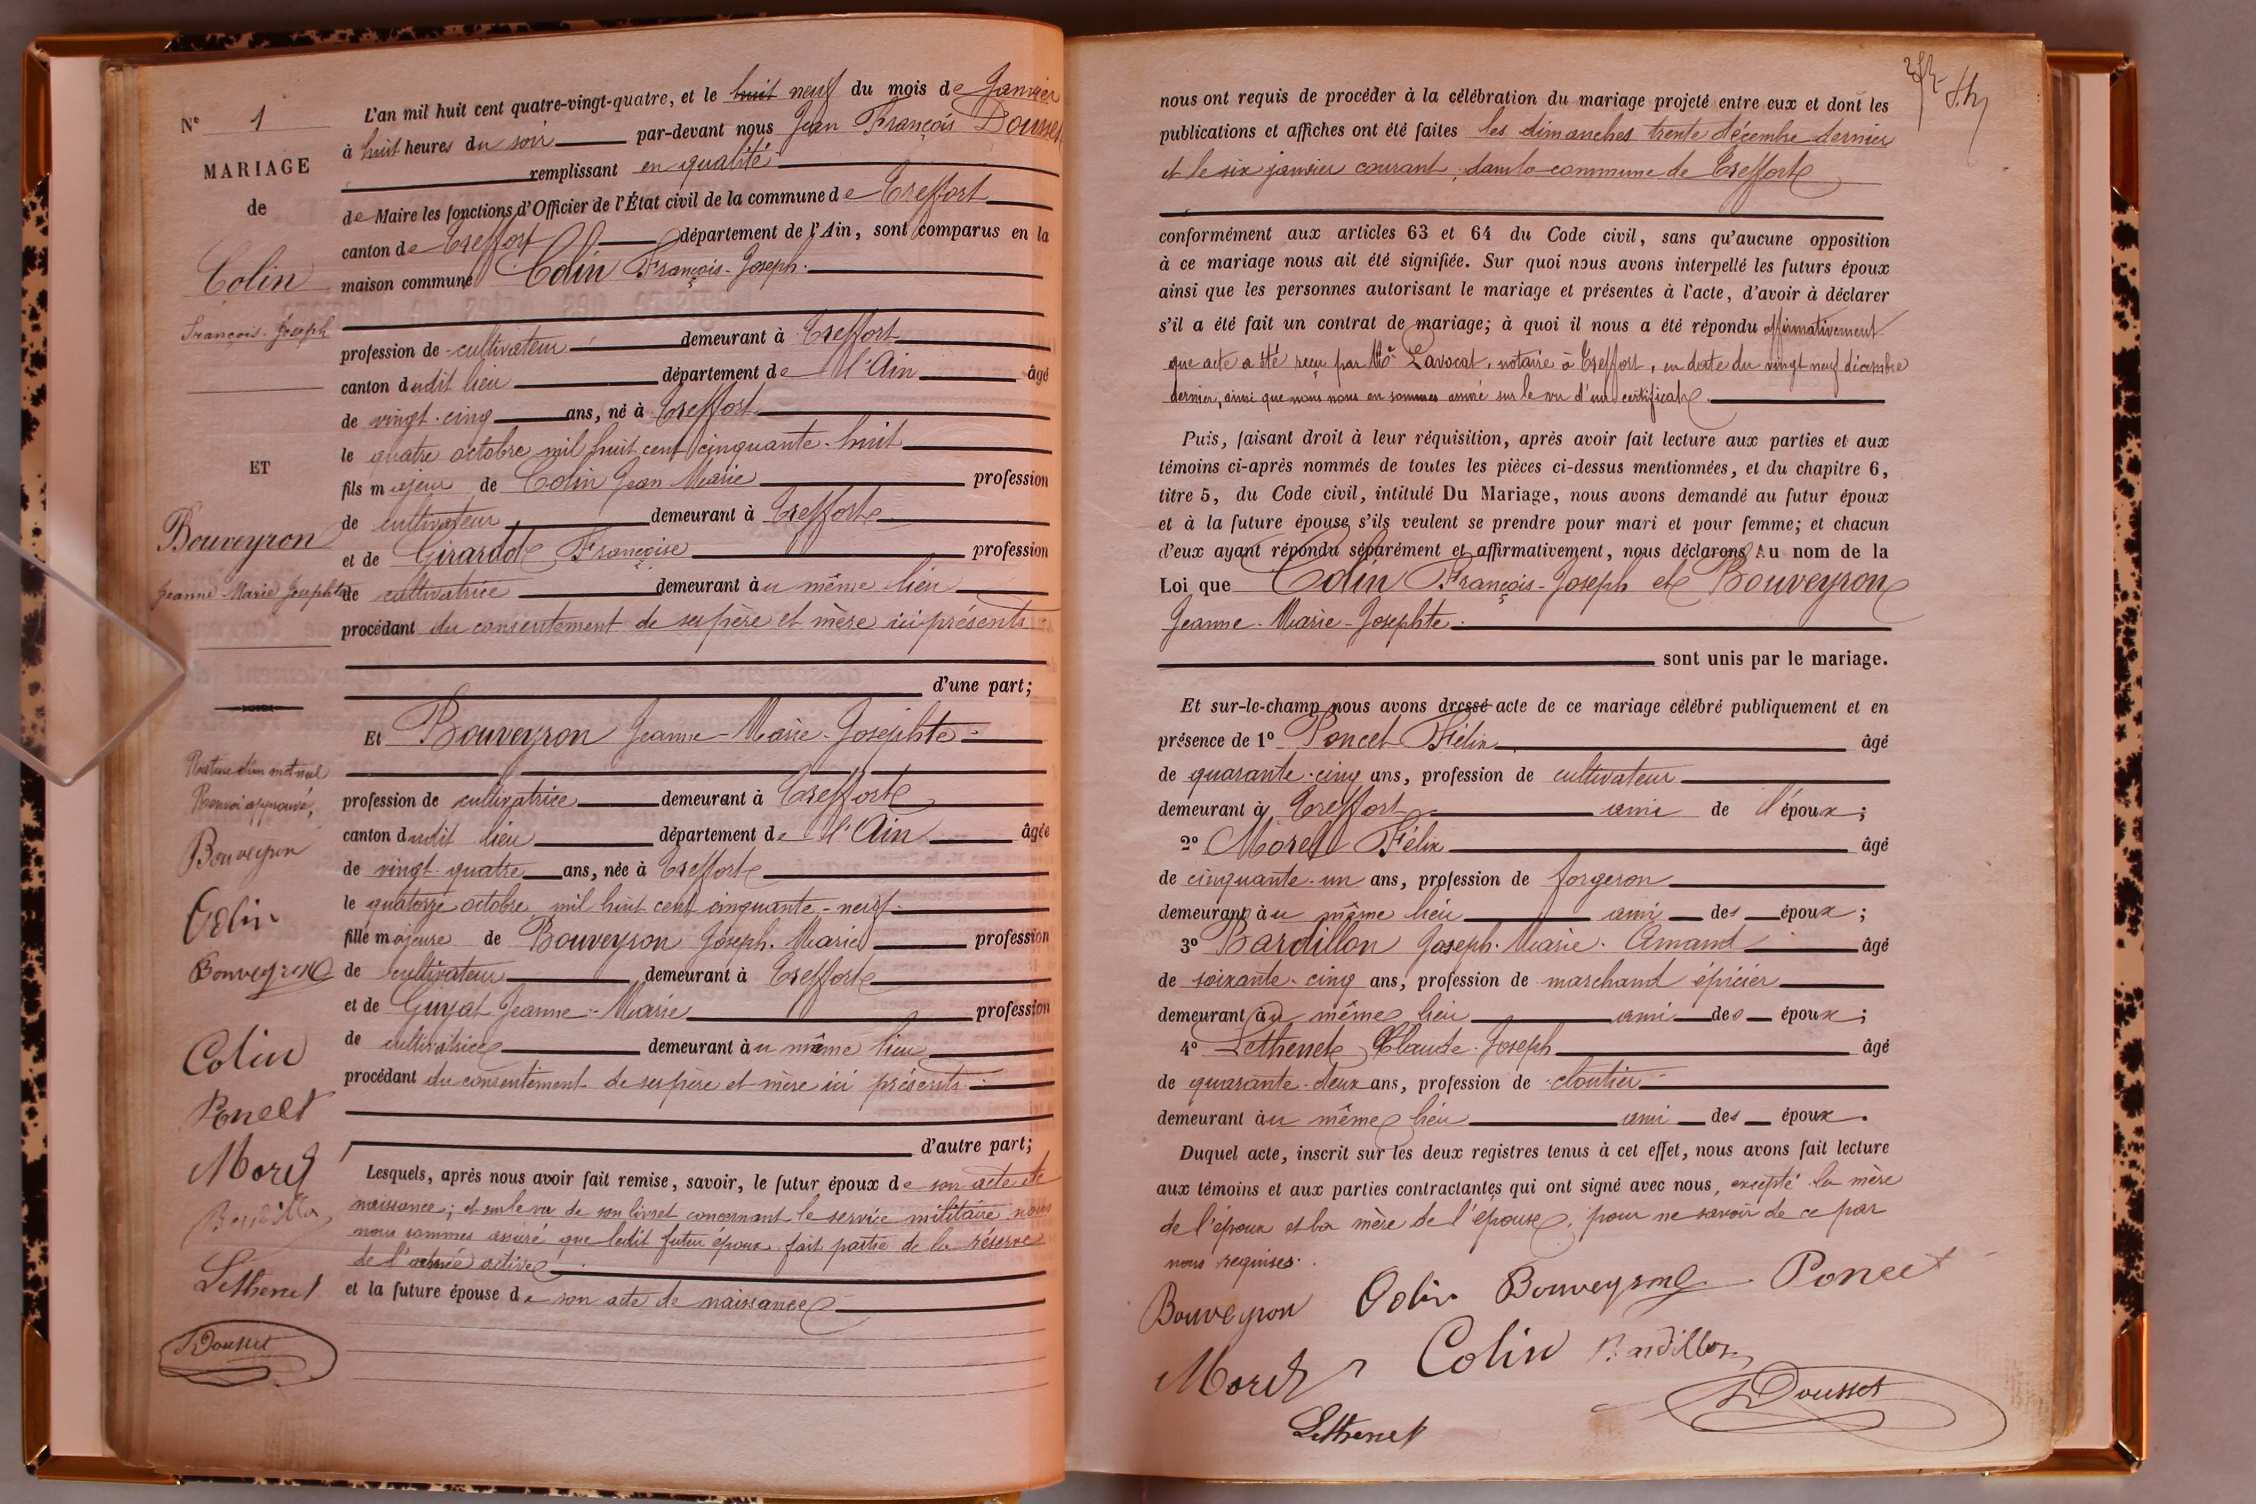 N° 1
MARIAGE
de
Colin
François-Joseph
ET
Bouveyron
Jeanne-Marie Josephte
Rature d'un mot nul
Renvoi approuvé,
Bouveyron
Colin
Bouveyron
Colin
Poncet
Morel
Bardillon
Lethenet
Dousset
L'an mil huit cent quatre-vingt-quatre, et le huit neuf du mois de Janvier
à huit heures du soir par-devant nous Jean François Dousset
remplissant en qualité
de Maire les fonctions d'Officier de l'État civil de la commune de Treffort
canton de Treffort département de l'Ain, sont comparus en la
maison commune Colin François-Joseph.
profession de cultivateur demeurant à Treffort
canton dudit lieu département de l'Ain âgé
de vingt-cinq ans, né à Treffort
le quatre octobre mil huit cent cinquante-huit
fils majeur de Colin Jean Marie profession
de cultivateur demeurant à Treffort
et de Girardot Françoise profession
de cultivatrice demeurant au même lieu
procédant du consentement de ses père et mère ici présents
d'une part;
Et Bouveyron Jeanne-Marie-Josephte
profession de cultivatrice demeurant à Treffort
canton dudit lieu département de l'Ain âgée
de vingt-quatre ans, née à Treffort
le quatorze octobre mil huit cent cinquante-neuf
fille majeure de Bouveyron Joseph-Marie profession
de cultivateur demeurant à Treffort
et de Guyat Jeanne-Marie profession
de cultivatrice demeurant au même lieu
procédant du consentement de ses père et mère ici présents
d'autre part;
Lesquels, après nous avoir fait remise, savoir, le futur époux de son acte de
naissance; et sur le vu de son livret concernant le service militaire nous
nous sommes assuré que ledit futur époux fait partie de la réserve
de l'armée active
et la future épouse de son acte de naissance
nous ont requis de procéder à la célébration du mariage projeté entre eux et dont les
publications et affiches ont été faites les dimanches trente décembre dernier
et le six janvier courant, dans la commune de Treffort
conformément aux articles 63 et 64 du Code civil, sans qu'aucune opposition
à ce mariage nous ait été signifiée. Sur quoi nous avons interpellé les futurs époux
ainsi que les personnes autorisant le mariage et présentes à l'acte, d'avoir à déclarer
s'il a été fait un contrat de mariage; à quoi il nous a été répondu affirmativement
que acte a été reçu par Me Lavocat, notaire à Treffort, en date du vingt neuf décembre
dernier, ainsi que nous nous en sommes assuré sur le vu d'un certificat.
Puis, faisant droit à leur réquisition, après avoir fait lecture aux parties et aux
témoins ci-après nommés de toutes les pièces ci-dessus mentionnées, et du chapitre 6,
titre 5, du Code civil, intitulé Du Mariage, nous avons demandé au futur époux
et à la future épouse s'ils veulent se prendre pour mari et pour femme; et chacun
d'eux ayant répondu séparément et affirmativement, nous déclarons Au nom de la
Loi que Colin François-Joseph et Bouveyron
Jeanne-Marie-Josephte
sont unis par le mariage.
Et sur-le-champ nous avons dressé acte de ce mariage célébré publiquement et en
présence de 1° Poncet Félix âgé
de quarante-cinq ans, profession de cultivateur
demeurant à Treffort ami de l'époux;
2° Morel Félix âgé
de cinquante-un ans, profession de forgeron
demeurant au même lieu ami des époux;
3° Bardillon Joseph-Marie-Amand âgé
de soixante-cinq ans, profession de marchand épicier
demeurant au même lieu ami des époux;
4° Lethenet Claude-Joseph âgé
de quarante-deux ans, profession de cloutier
demeurant au même lieu ami des époux.
Duquel acte, inscrit sur les deux registres tenus à cet effet, nous avons fait lecture
aux témoins et aux parties contractantes qui ont signé avec nous, excepté la mère
de l'époux et la mère de l'épouse, pour ne savoir de ce par
nous requises.
Bouveyron Colin Bouveyron Poncet
Morel Colin Bardillon
Dousset
Lethenet